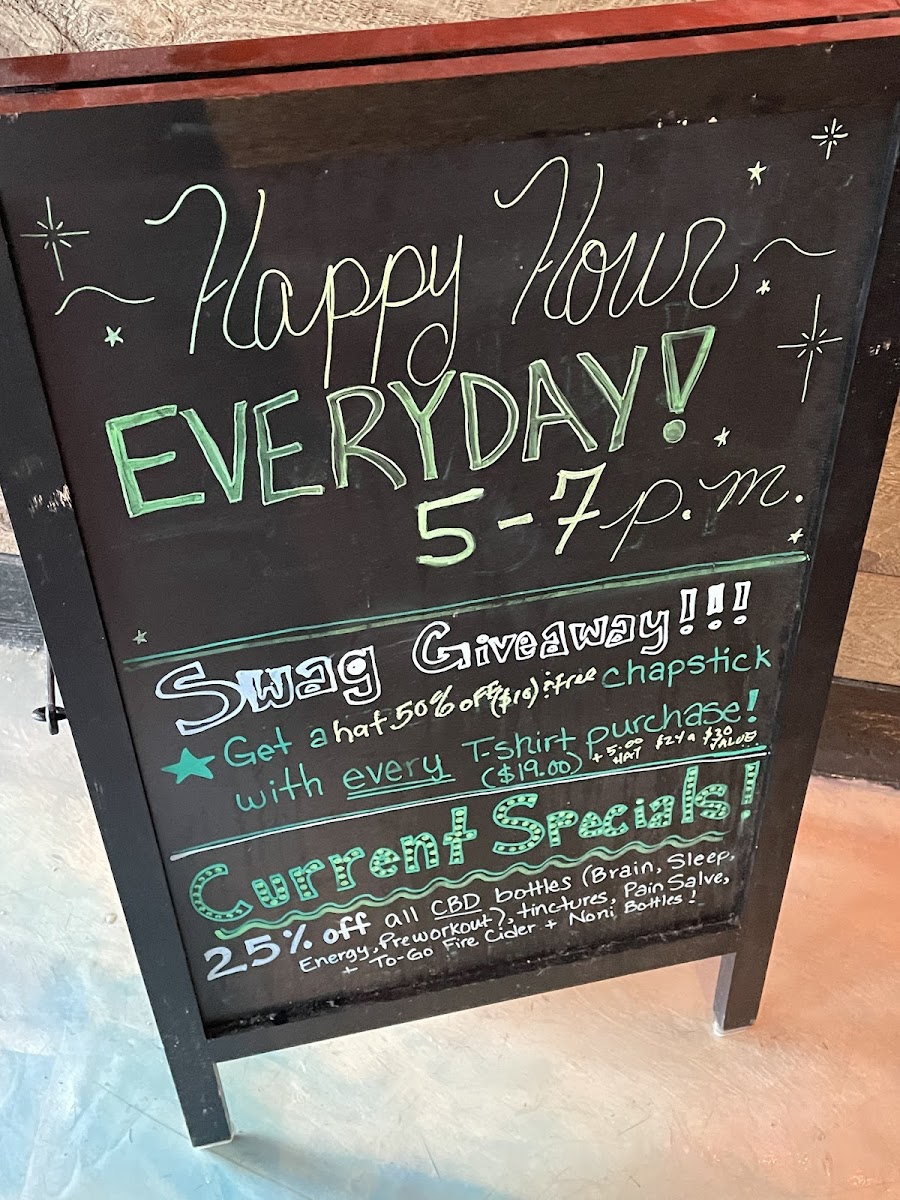 ~ Happy Hour ~
EVERYDAY!
5-7 p.m.
Swag Giveaway!!!
★ Get a hat 50% off ($10) : free chapstick
with every T-shirt purchase!
($19.00) + 5.00 HAT $24 a $30 VALUE
Current Specials!
25% off all CBD bottles (Brain, Sleep,
Energy, Preworkout), tinctures, Pain Salve,
+ To-Go Fire Cider + Noni Bottles!